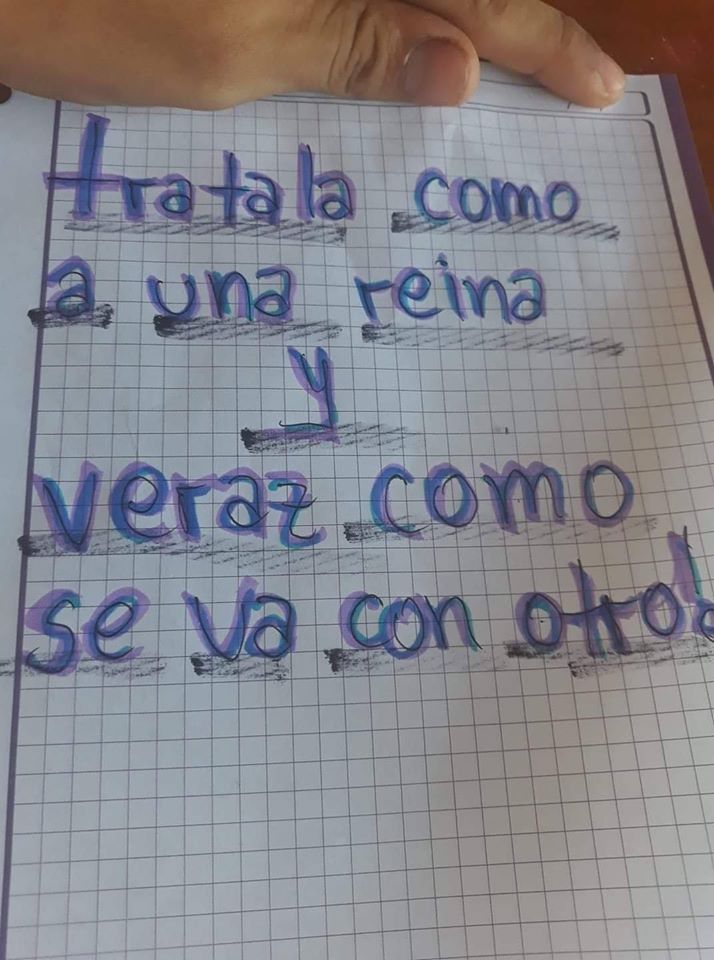 tratala como
a una reina
y
veraz como
se va con otro!